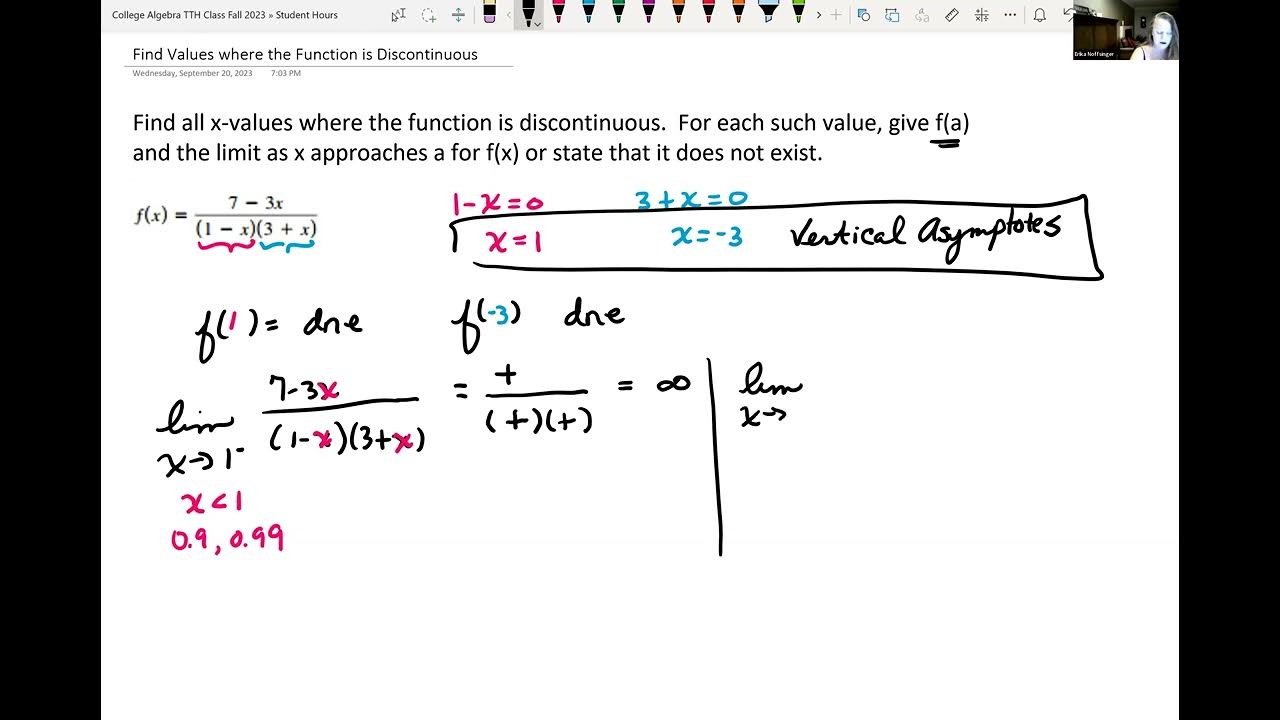 College Algebra TTH Class Fall 2023 » Student Hours
Erika Noffsinger
Find Values where the Function is Discontinuous
Wednesday, September 20, 2023 7:03 PM
Find all x-values where the function is discontinuous. For each such value, give f(a)
and the limit as x approaches a for f(x) or state that it does not exist.
f(x) = (7 − 3x)/((1 − x)(3 + x))
1-x=0 3+x=0
x=1 x=-3 Vertical Asymptotes
f(1)= dne f(-3) dne
lim x→1⁻ (7-3x)/((1-x)(3+x)) = +/((+)(+)) = ∞ lim x→
x<1
0.9, 0.99